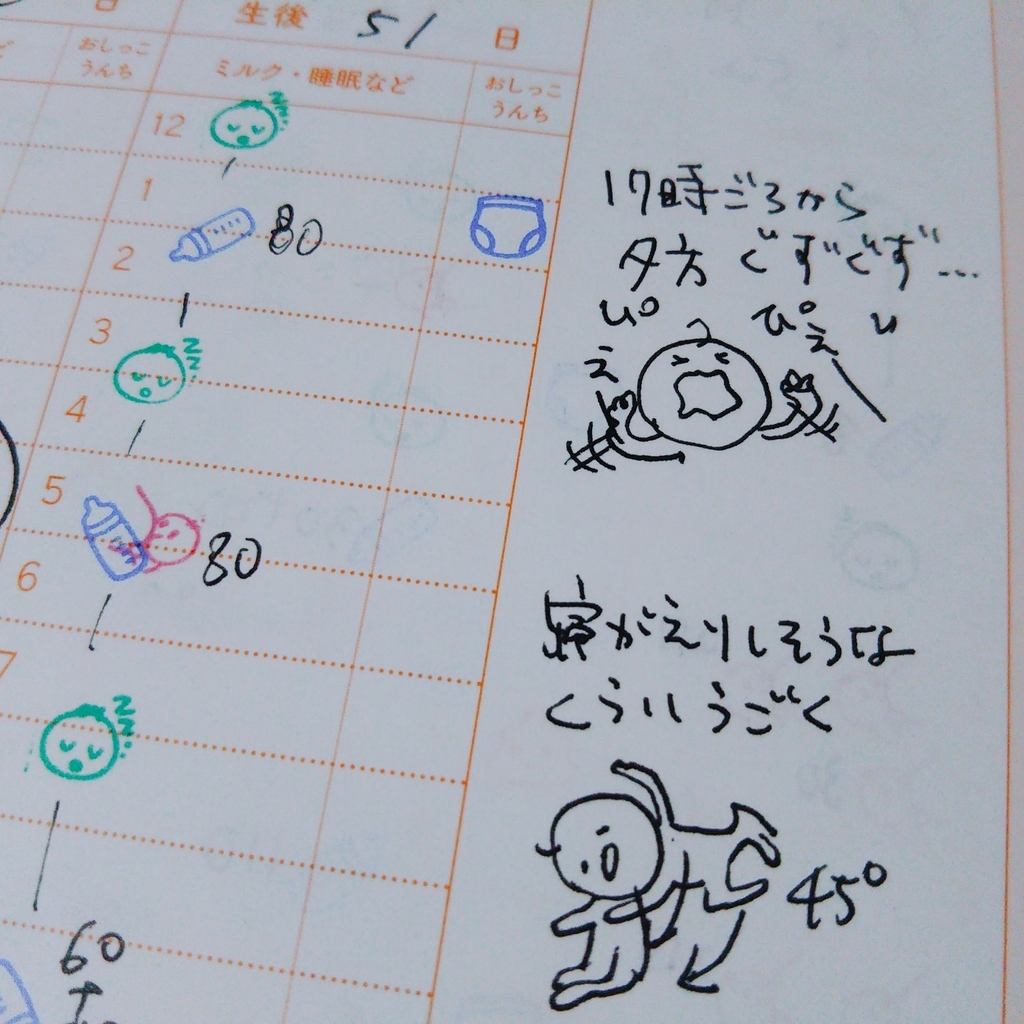 生後 51 日
おしっこ
うんち
ミルク・睡眠など
おしっこ
うんち
12
1
80
2
3
4
5
80
6
7
60
17時ごろから
夕方 ぐずぐず…
ぴえ
ぴえー
寝がえりしそうな
くらいうごく
45°